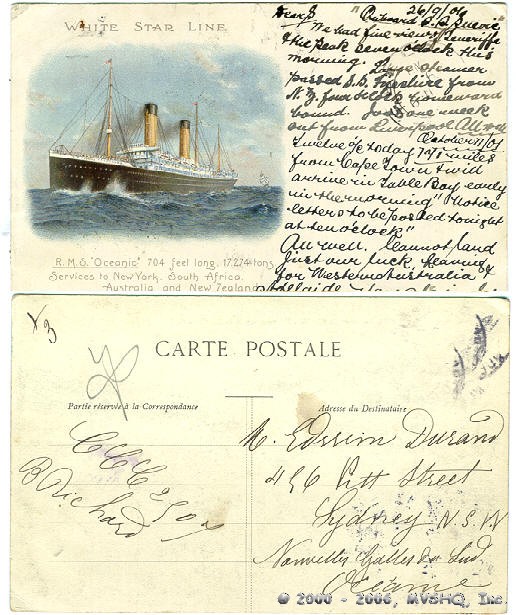 WHITE STAR LINE.
R.M.S. "Oceanic" 704 feet long. 17,274 tons.
Services to New York, South Africa,
Australia and New Zealand
26/9/06
On board S.S. Suevic
We had fine views Teneriffe
the peak seven o'clock this
morning. Large steamer
passed S.S. from
N.Z. four homeward
bound. Just one week
out from Liverpool All well
October 11/06
Twelve o/c today miles
from Cape Town & will
arrive in Table Bay early
in the morning "Notice
letters to be posted tonight
at ten o'clock"
All well. Cannot land
just our luck.
for Western Australia
Adelaide
3
CARTE POSTALE
Partie réservée à la Correspondance
Adresse du Destinataire
B Richard
M. Durand
456 Pitt Street
Sydney N.S.W
Nouvelles Galles du Sud.
Océanie
© 2000 - 2006, MVSHQ, Inc.